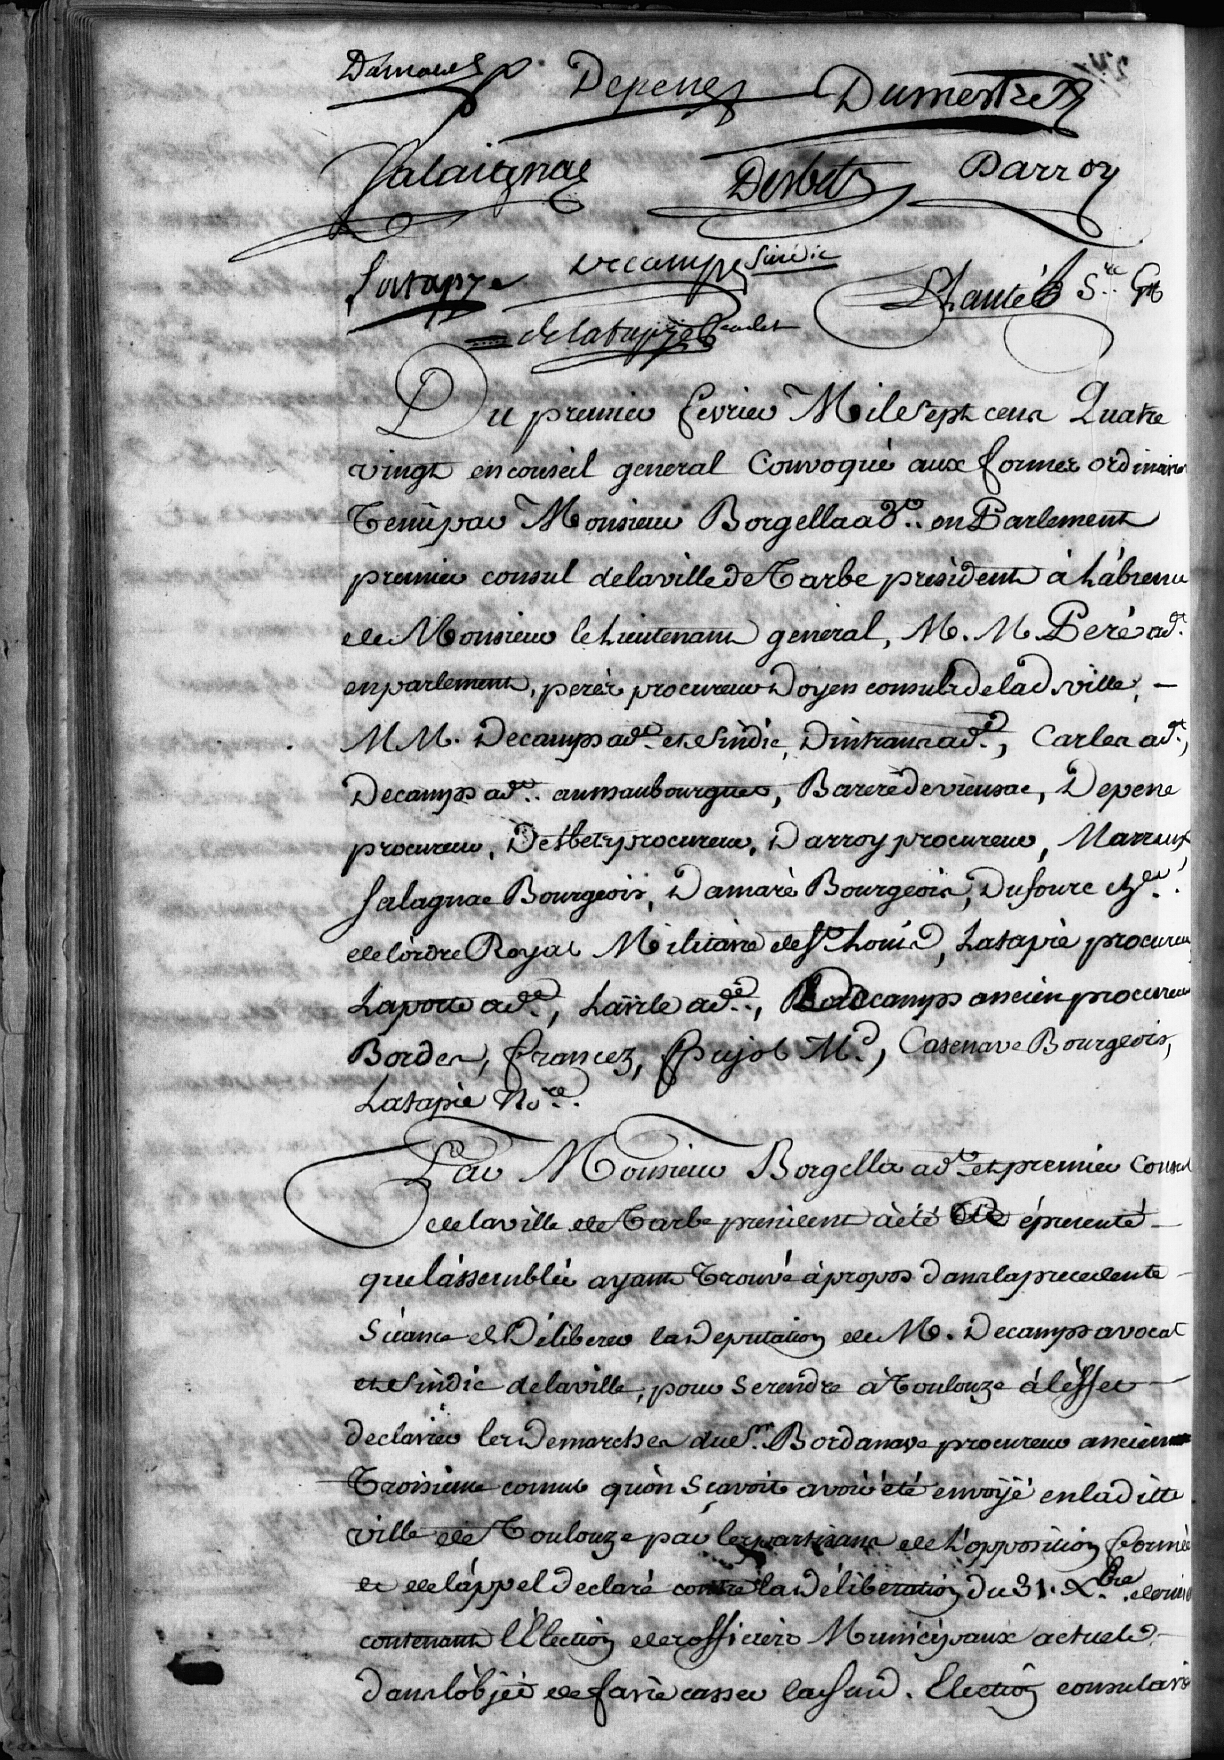 Damare Depene Dumestre
Salaignac Desbets Darroy
Latapye Decamps Sindic Lhauté S.re Gr.
de Latapye
Du premier fevrier Mile sept cens Quatre
vingt en conseil general Convoqué aux formes ordinaires
Tenu par Monsieur Borgella ad.t en Parlement
premier consul delaville de Tarbe president à Làbsence
de Monsieur le Lieutenant general, M. M. Peré ad.t
en parlement, perés procureur Doyen consuls delad ville, —
M M. Decamps ad.t et Sindic, Dintrans ad.t, Carles ad.t,
Decamps ad.t aumaubourguet, Barere de vieusac, Depene
procureur, Desbets procureur, Darroy procureur, Marraus
Salagnac Bourgeois, Damaré Bourgeois, Dufourc ch.er
de lòrdre Royal Militaire de S.t Louis, Latapie procureur
Laporte ad.t, Laïrle ad.t, Decamps ancien procureur
Bordes, francez, Pujol M.d, Casenave Bourgeois,
Latapie No.re
Par Monsieur Borgella ad.t et premier Consul
delaville de Tarbe president à été Représenté
que làssemblée ayant Trouvé àpropos dans la precedente
Séance de Déliberer la Deputation de M. Decamps avocat
et Sindic delaville, pour Serendre à Toulouze à lèffet
declairer les Demarches du S.r Bordanave procureur ancien
Troisieme consul quòn Sçavoit avoir été envoÿé en laditte
ville de Toulouze par les partisans de L'opposition formée
et de làppel declaré contre la Déliberation du 31. X.bre dernier
contenant l'Election des officiers Municipaux actuels.
dans lòbjèt de faire casser la susd. Election consulaire